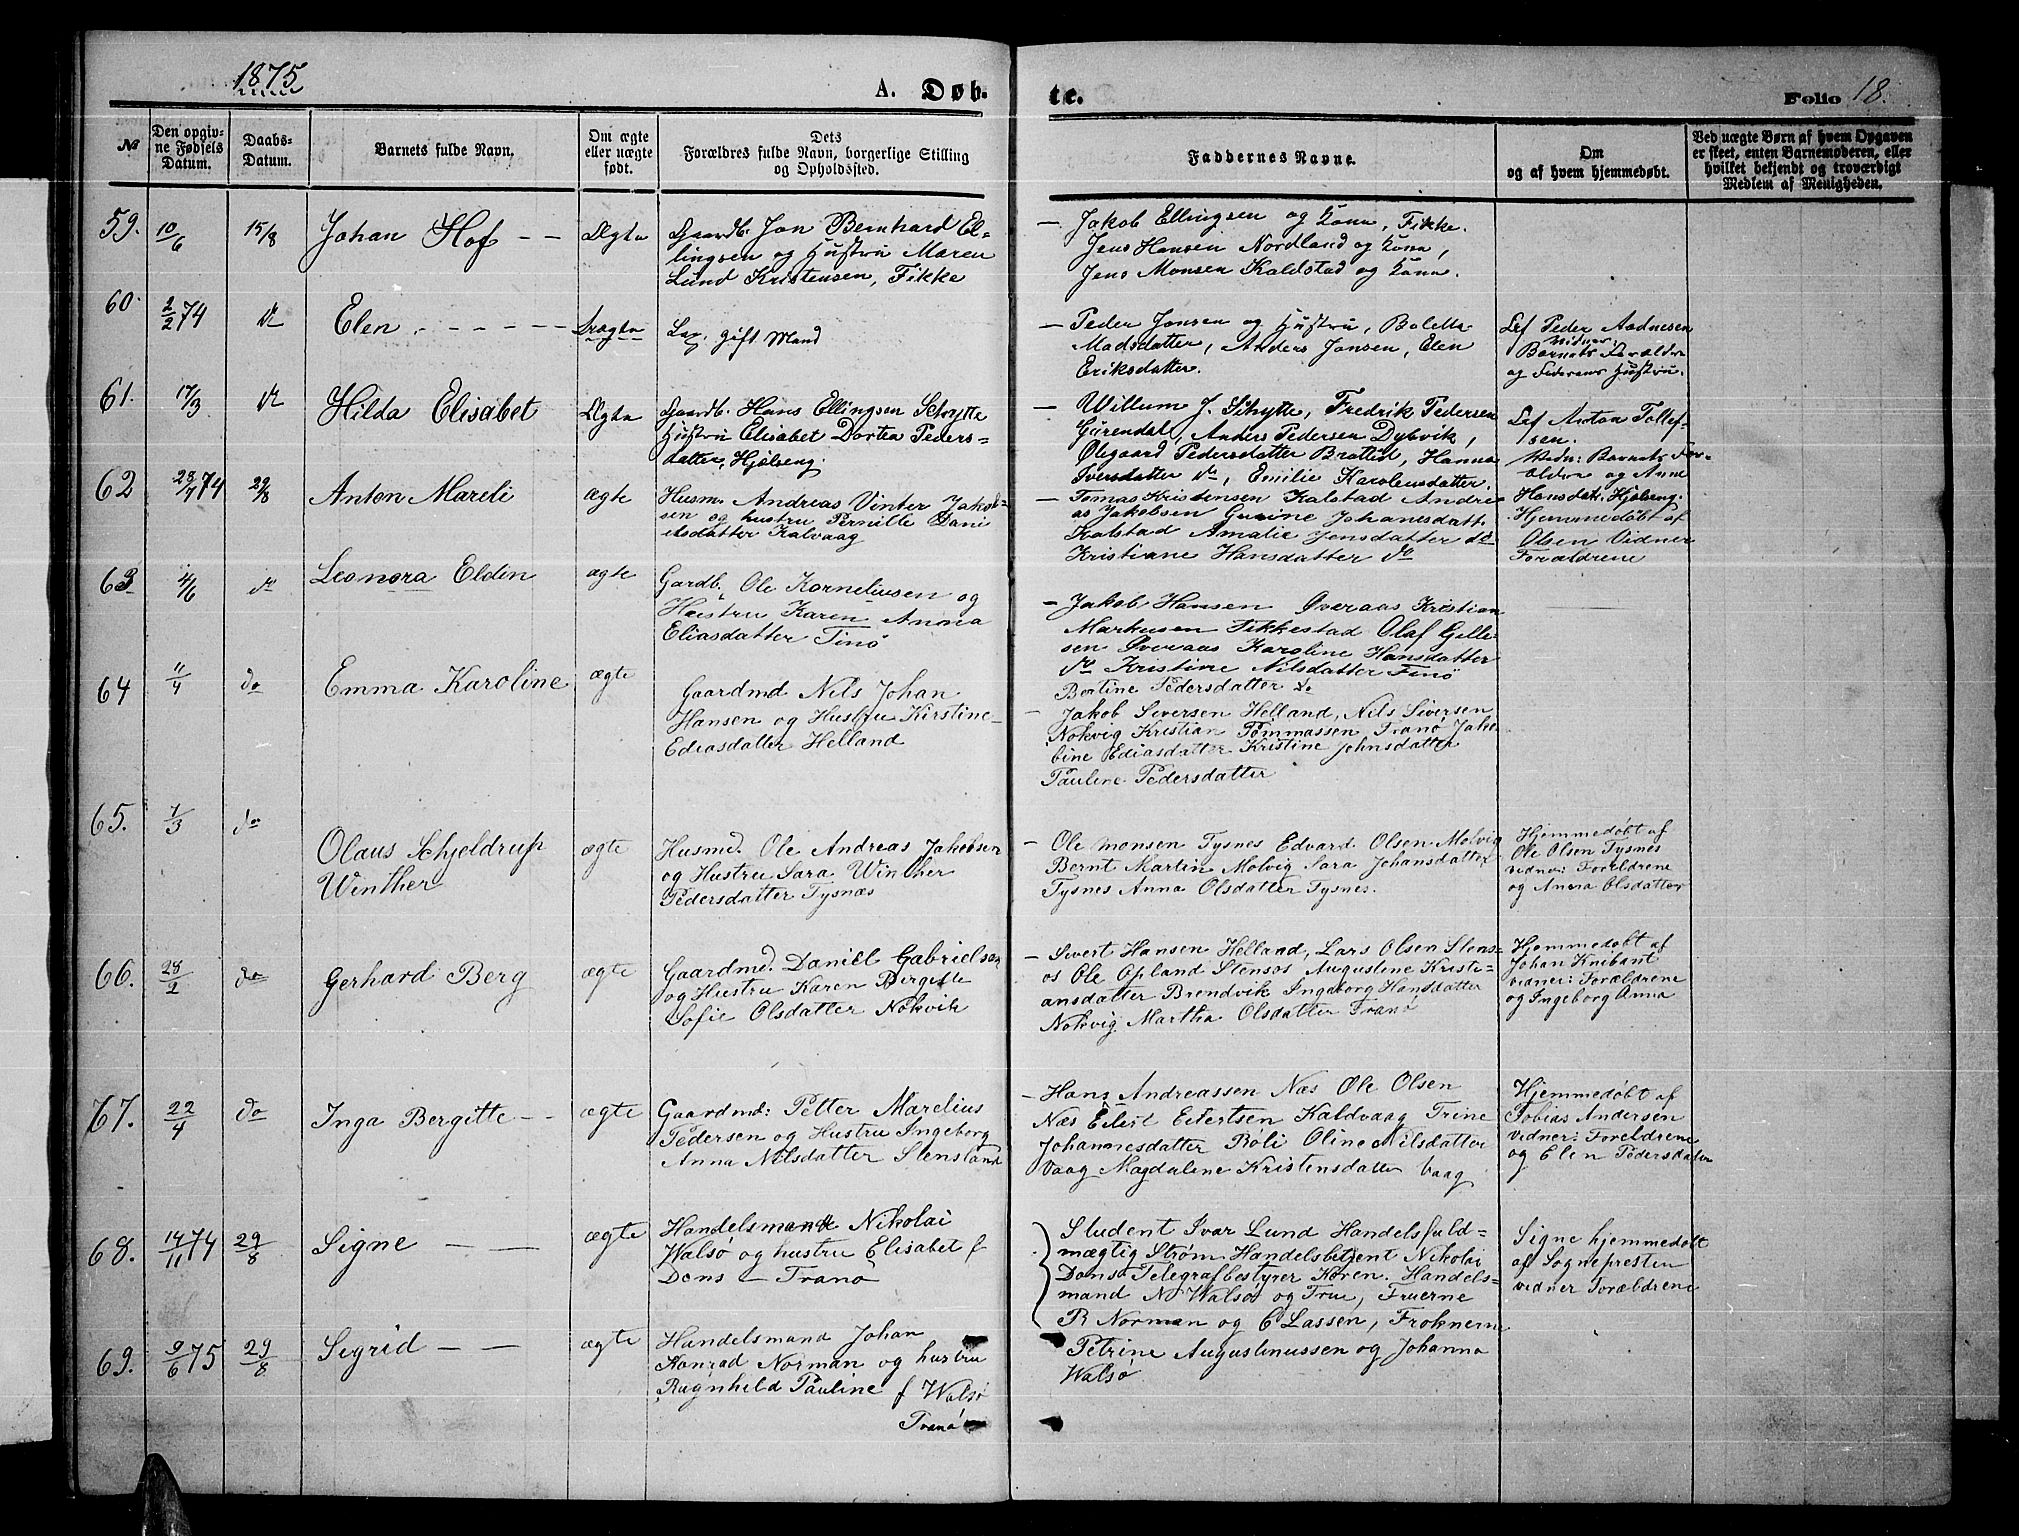 1875
A. Døb-
te.
Folio 18.
№
Den opgiv-
ne Fødsels
Datum.
Daabs-
Datum.
Barnets fulde Navn.
Om ægte
eller uægte
født.
Dets
Forældres fulde Navn, borgerlige Stilling
og Opholdssted.
Faddernes Navne.
Om
og af hvem hjemmedøbt.
Ved uægte Børn af hvem Opgaven
er skeet, enten Barnemoderen, eller
hvilket bekjendt og troværdigt
Medlem af Menigheden.
59. 10/6 15/8 Johan Hof - - Ægte
Gaardb. Jon Bernhard El-
lingsen og Hustru Maren
Lund Kristensen, Fikke
- Jakob Ellingsen og Kona, Fikke.
Jens Hansen Nordland og Kona,
Jens Monsen Kaldstad og Kona.
60. 2/2 74 do Elen - - - - - Uægte
Lap. gift Mand
- Peder Jonsen og Hustru, Boletta
Madsdatter, Anders Jonsen, Elen
Eriksdatter.
Lef Peder Andnesen
Vidner:
Barnets Forældre
og Federens Hustru.
61. 17/3 do Hilda Elisabet Ægte
Gaardb. Hans Ellingsen Schytte
Hustru Elisabet Dortea Peders-
datter, Hjelseng.
- Willum J. Schytte, Fredrik Pedersen
Gurendal, Anders Pedersen Dybvik,
Olegaard Pedersdatter Brattid, Hanna
Iversdatter do, Emilie Karolensdatter.
Lef Anton Tollef-
sen.
Vidn: Barnets For-
ældre og Anne
Hansdatr. Hjelseng.
62 28/7 74 29/8 Anton Mareli ægte
Husm. Andreas Vinter Jakob-
sen og hustru Pernille Dani
elsdatter Kalvaag
- Tomas Kristensen Kalstad Andre
as Jakobsen Gurine Johanesdatt.
Kalstad Amalie Jensdatter do
Kristiane Hansdatter do
Hjemmedøbt af
Olsen Vidner
Forældrene
63 4/6 do Leonora Eldin ægte
Gardb. Ole Kornelinsen og
Hustru Karen Anna
Eliasdatter Finø
- Jakob Hansen Øveraas Kristian
Markusen Fikkestad Olaf Gille-
sen Øveraas Karoline Hansdatter
do Kristine Nilsdatter Finø
Bertine Pedersdatter do
64 11/4 do Emma Karoline ægte
Gaardmd Nils Johan
Hansen og Hustru Kirstine
Ediasdatter Helland
- Jakob Siversen Helland, Nils Siversen
Nokvig Kristian Tommassen Tranø Jako
bine Ediasdatter Kristine Johnsdatter
Pauline Pedersdatter
65. 7/3 do Olaus Schjeldrup
Winther ægte
Husmd. Ole Andreas Jakobsen
og Hustru Sara Winther
Pedersdatter Tysnæs
- Ole Monsen Tysnes Edvard Olsen Molvig
Bernt Martin Molvig Sara Johansdatter
Tysnes Anna Olsdatter Tysnes.
Hjemmedøbt af
Ole Olsen Tysnes
vidner: Foreldrene
og Anna Olsdatter
66. 28/2 do Gerhard Berg ægte
Gaardmd. Daniel Gabrielsen
og Hustru Karen Bergitte
Sofie Olsdatter Nokvik
- Sivert Hansen Helland, Lars Olsen Stens-
os Ole Opland Stensos Augustine Kristi-
ansdatter Brendvik Ingeborg Hansdatter
Nokvig Martha Olsdatter Tranø
Hjemmedøbt af
Johan Knibant
vidner: Forældrene
og Ingeborg Anna
67. 22/4 do Inga Bergitte - - ægte
Gaardmd: Petter Marelius
Pedersen og Hustru Ingeborg
Anna Nilsdatter Stensland
- Hans Andreassen Næs Ole Olsen
Næs Eilert Eilertsen Kaldvaag Trine
Johannesdatter Røli Oline Nilsdatter
Vaag Magdalene Kristensdatter Vaag
Hjemmedøbt af
Tobias Andersen
vidner: Foreldrene
og Elen Pedersdatter
68. 14/11 74 29/8 Signe - - ægte
Handelsmand Nikolai
Walsø og hustru Elisabet f
Dons - Tranø
Student Ivar Lund Handelsfuld-
mægtig Strøm Handelsbetjent Nikolai
Dons Telegrafbestyrer Koren. Handels-
mand N Walsø og Frue, Fruerne
R Norman og C Lassen, Frøknerne
Petrine Augustinussen og Johanna
Walsø
Signe hjemmedøbt
af Sognepresten
vidner Forældrene
69. 9/6 75 29/8 Sigrid - - ægte
Handelsmand Johan
Konrad Norman og hustru
Ragnhild Pauline f Walsø
Tranø